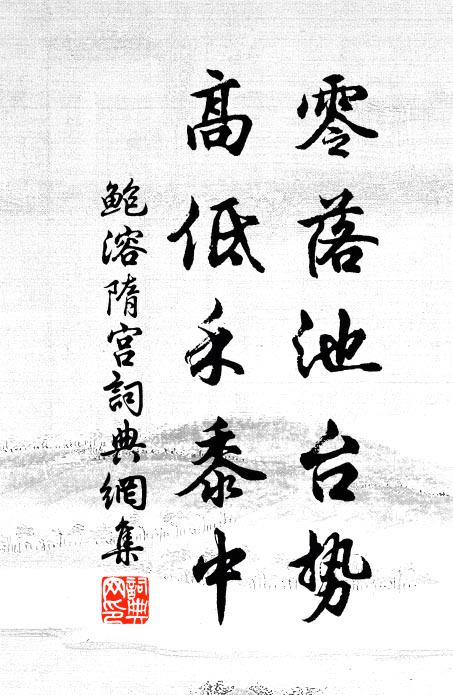 零落池台势
高低禾黍中
鲍溶隋宫詞典網集
詞典网印